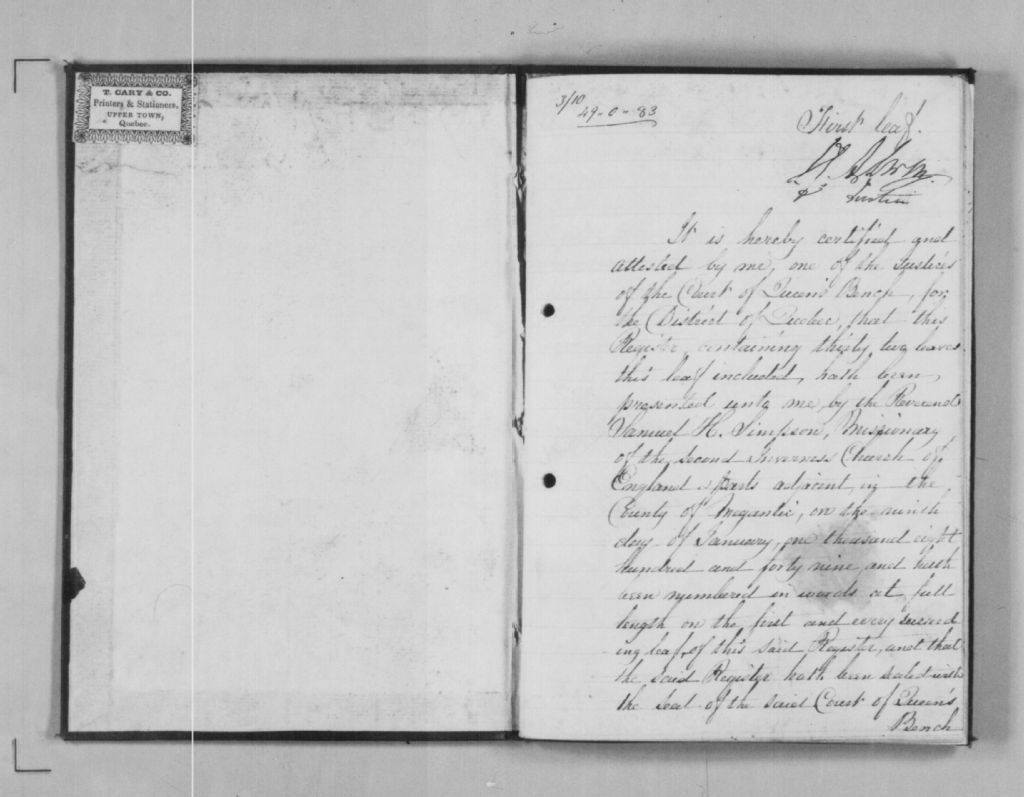 T. CARY & CO.
Printers & Stationers,
UPPER TOWN,
Quebec.
3/10
49-0-83
First leaf.
Justice
It is hereby certified and
attested by me, one of the Justices
of the Court of Queen's Bench, for
the District of Quebec, that this
Register, containing thirty two leaves
this leaf included, hath been
presented unto me, by the Reverend
Samuel H. Simpson, Missionary
of the second Inverness Church of
England & parts adjacent, in the
County of Megantic, on the ninth
day of January, one thousand eight
hundred and forty nine, and hath
been numbered in words at full
length on the first and every succeed
ing leaf, of this said Register, and that
the said Register hath been sealed with
the Seal of the said Court of Queen's
Bench